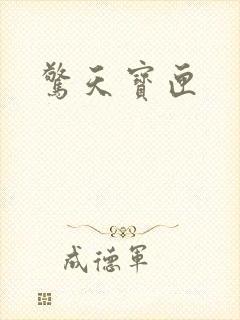 驚天寶匣
成德軍